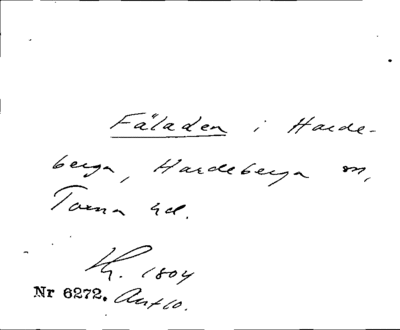 Fäladen i Harde-
berga, Hardeberga sn,
Torna hd.
1804
Nr 6272.